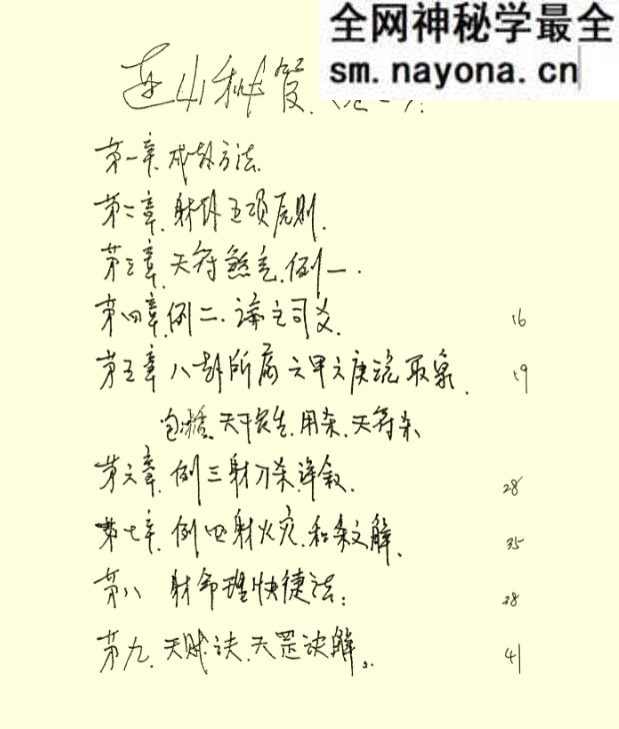 全网神秘学最全
sm.nayona.cn
连山秘笈
第一章.成卦方法.
第二章.射卦五项原则.
第三章.天符煞之.例一.
第四章.例二.论之司爻. 16
第五章 八卦所属六甲六庚 取象. 19
包括.天干 .用杀.天符杀.
第六章.例三射刀杀.详叙. 28
第七章.例四射火灾.和 文解. 35
第八 射命理快捷法: 38
第九.天賊诀.天罡诀解. 41